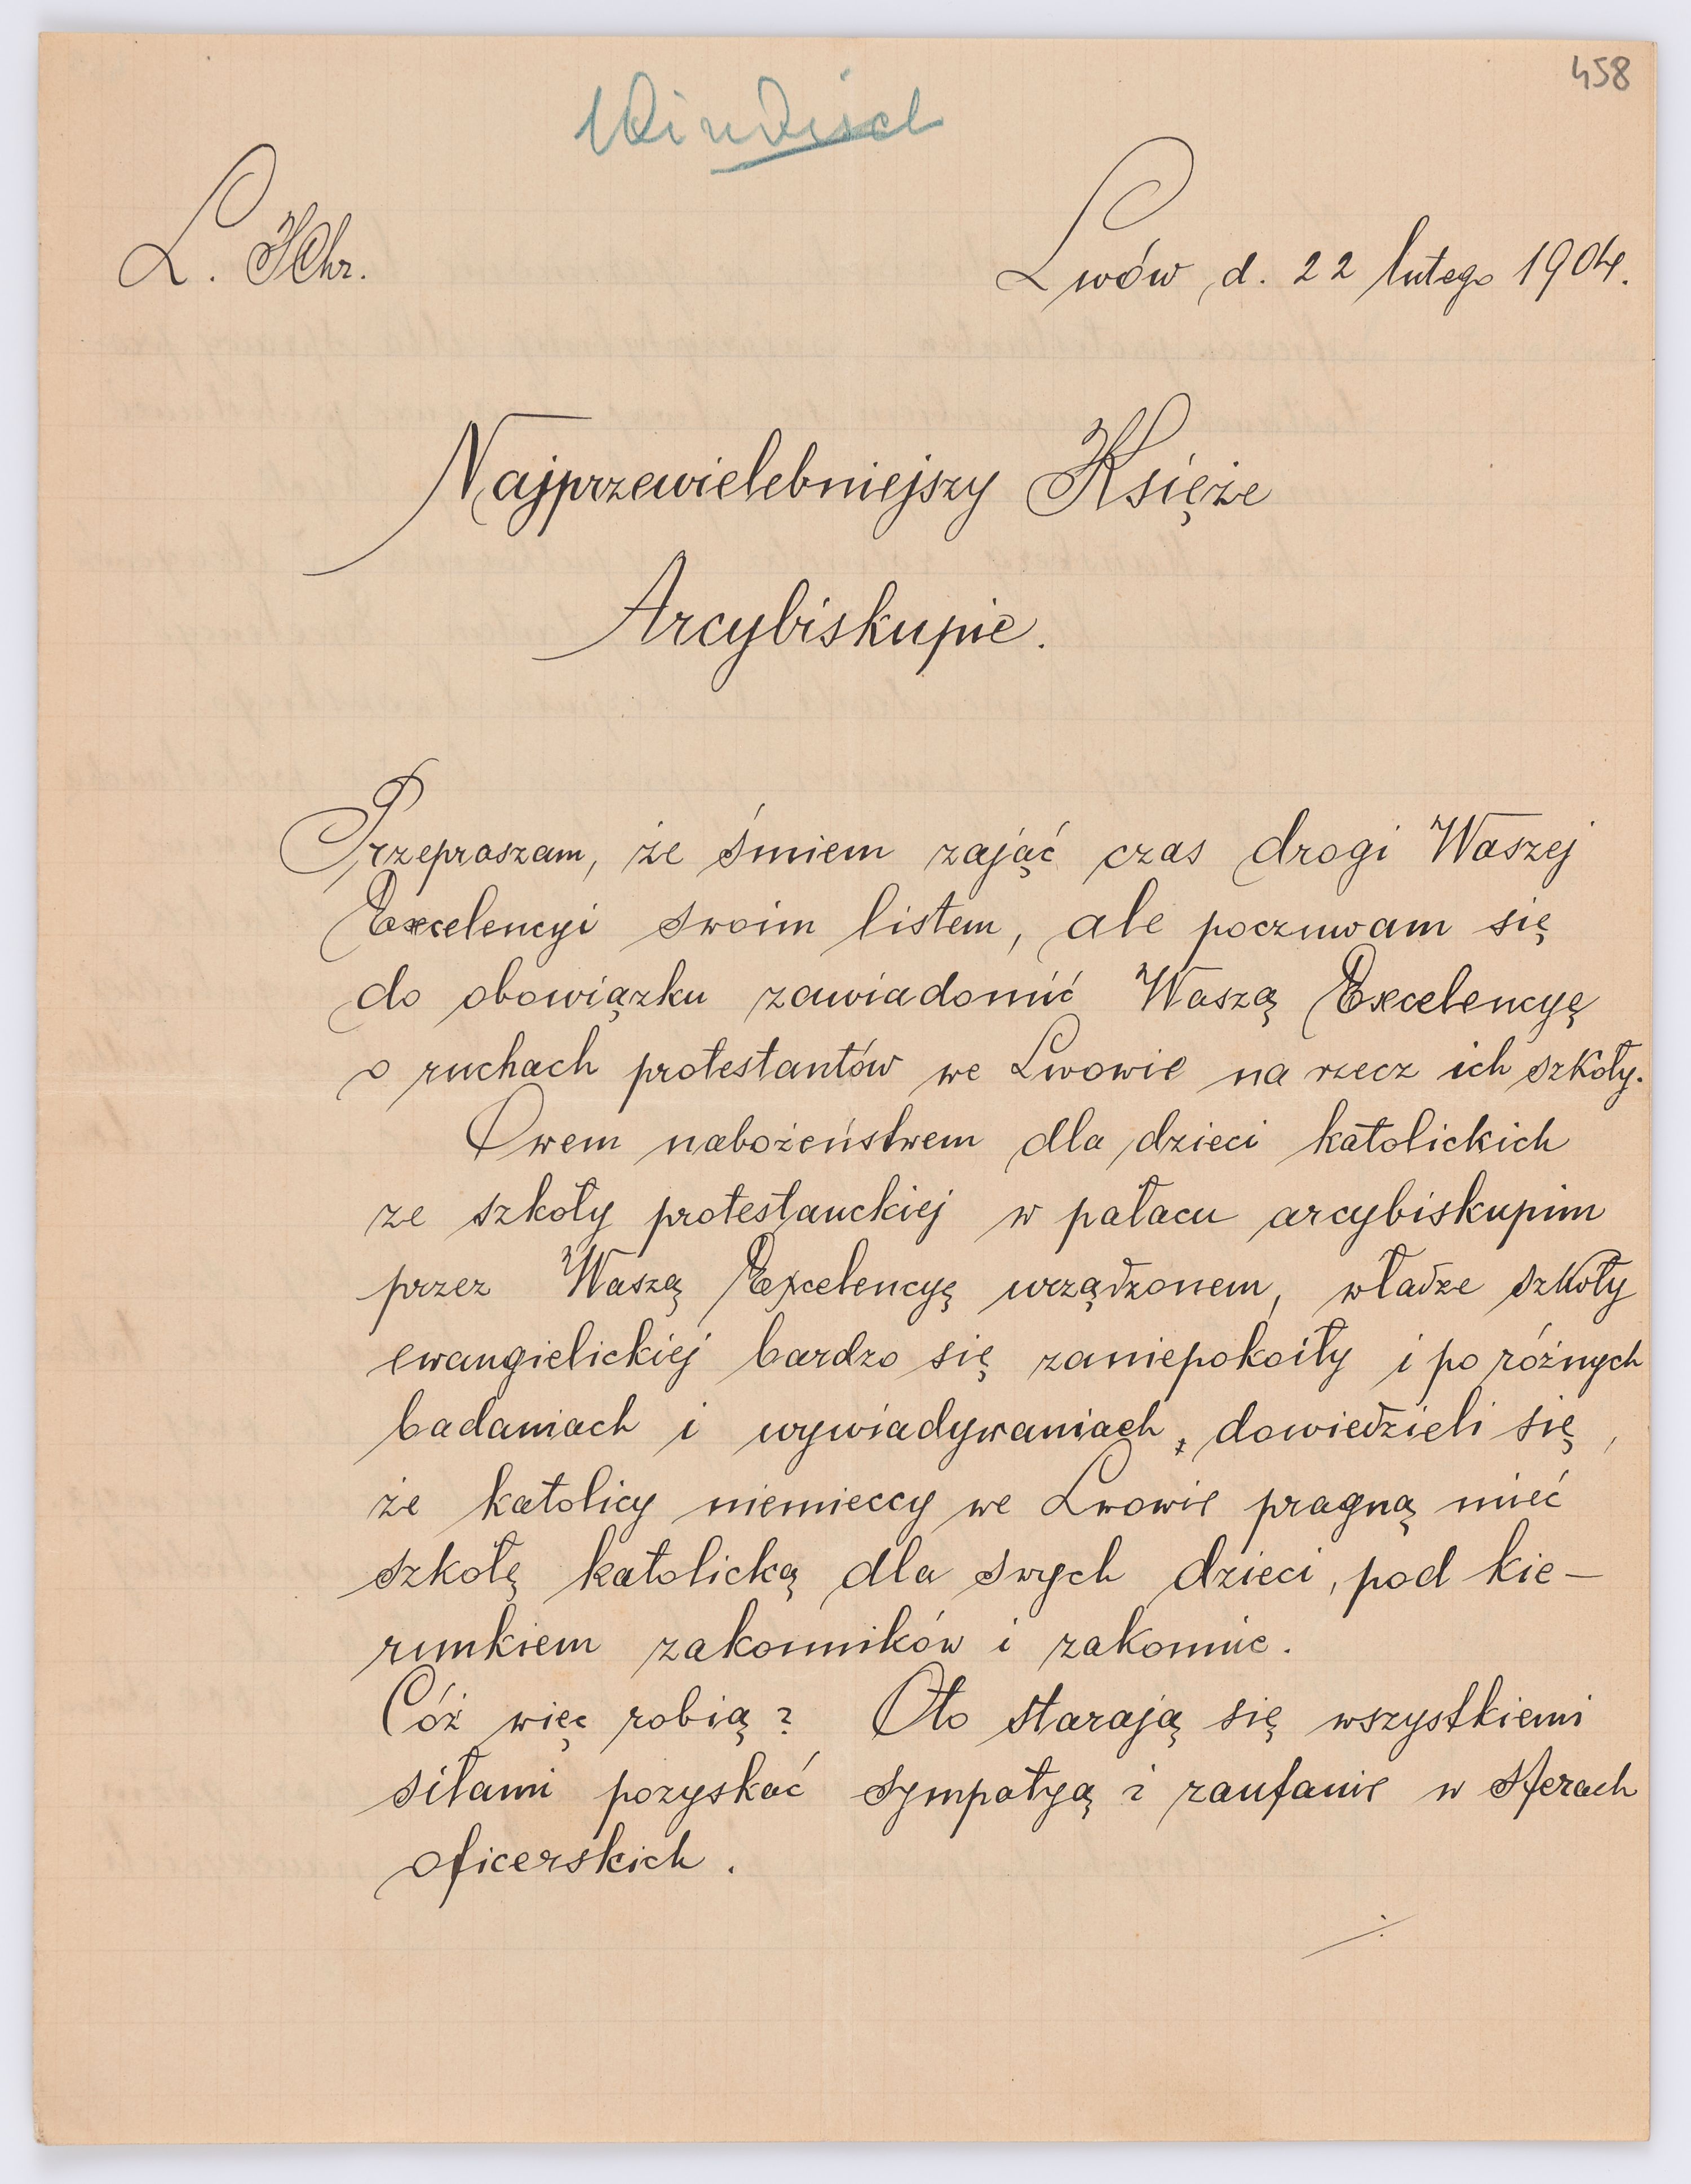 458
Windisch
L. JChr.
Lwów, d. 22 lutego 1904.
Najprzewielebniejszy Księże
Arcybiskupie.
Przepraszam, że śmiem zająć czas drogi Waszej
Excelencyi swoim listem, ale poczuwam się
do obowiązku zawiadomić Waszą Excelencyę
o ruchach protestantów we Lwowie na rzecz ich szkoły.
Owem nabożeństwem dla dzieci katolickich
ze szkoły protestanckiej w pałacu arcybiskupim
przez Waszą Excelencyę urządzonem, władze szkoły
ewangielickiej bardzo się zaniepokoiły i po różnych
badaniach i wywiadywaniach, dowiedzieli się,
że katolicy niemieccy we Lwowie pragną mieć
szkołę katolicką dla swych dzieci, pod kie-
runkiem zakonników i zakonnic.
Cóż więc robią? Oto starają się wszystkiemi
siłami pozyskać sympatyą i zaufanie w sferach
oficerskich.